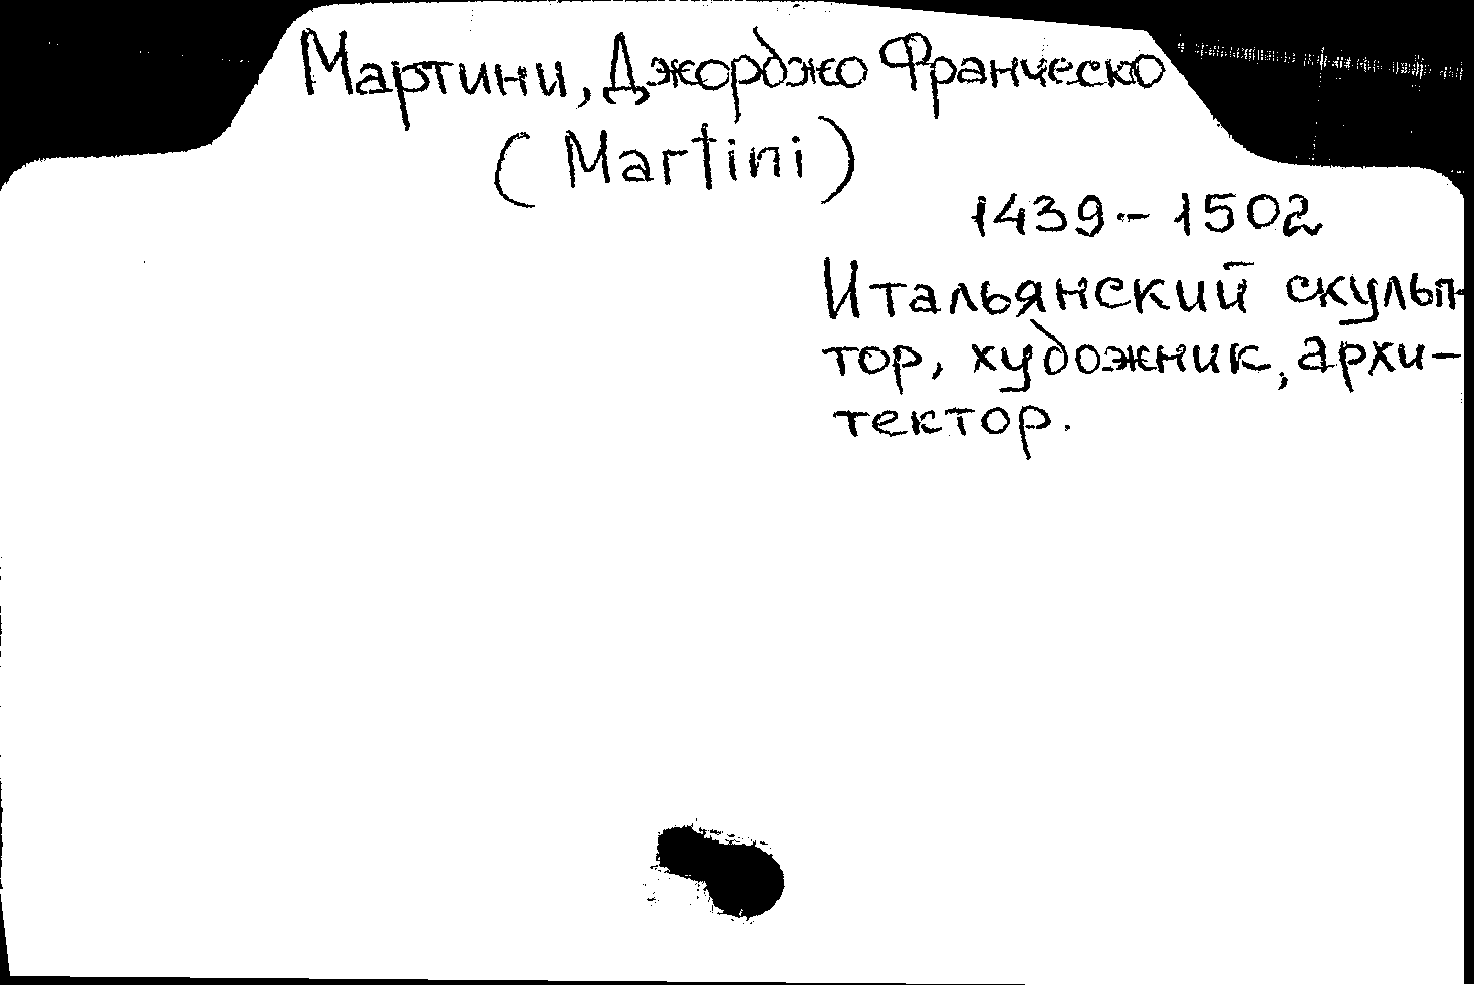 Мартини, Джорджо Франческо
(Martini)
1439 - 1502
Итальянский скульп-
тор, художник, архи-
тектор.